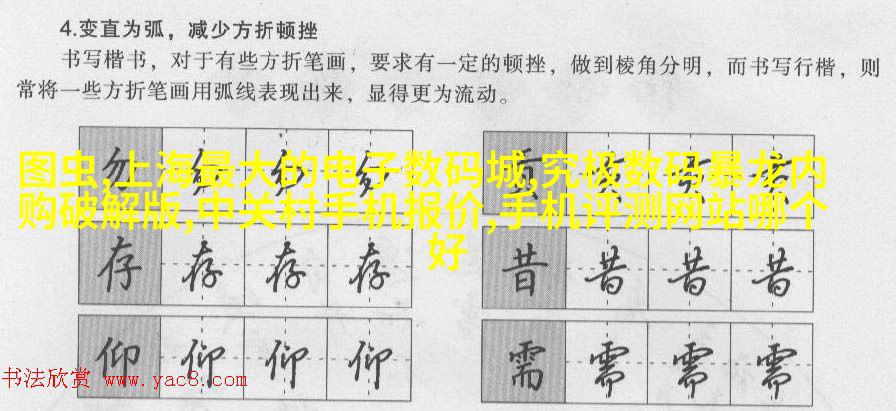 4.变直为弧，减少方折顿挫
书写楷书，对于有些方折笔画，要求有一定的顿挫，做到棱角分明，而书写行楷，则
常将一些方折笔画用弧线表现出来，显得更为流动。
图虫,上海最大的电子数码城,究极数码暴龙内
购破解版,中关村手机报价,手机评测网站哪个
好
勿 勿 勿 勿 贡 贡 贡 贡
存 存 存 存 昔 昔 昔 昔
仰 仰 仰 仰 需 需 需 需
书法欣赏 www.yac8.com